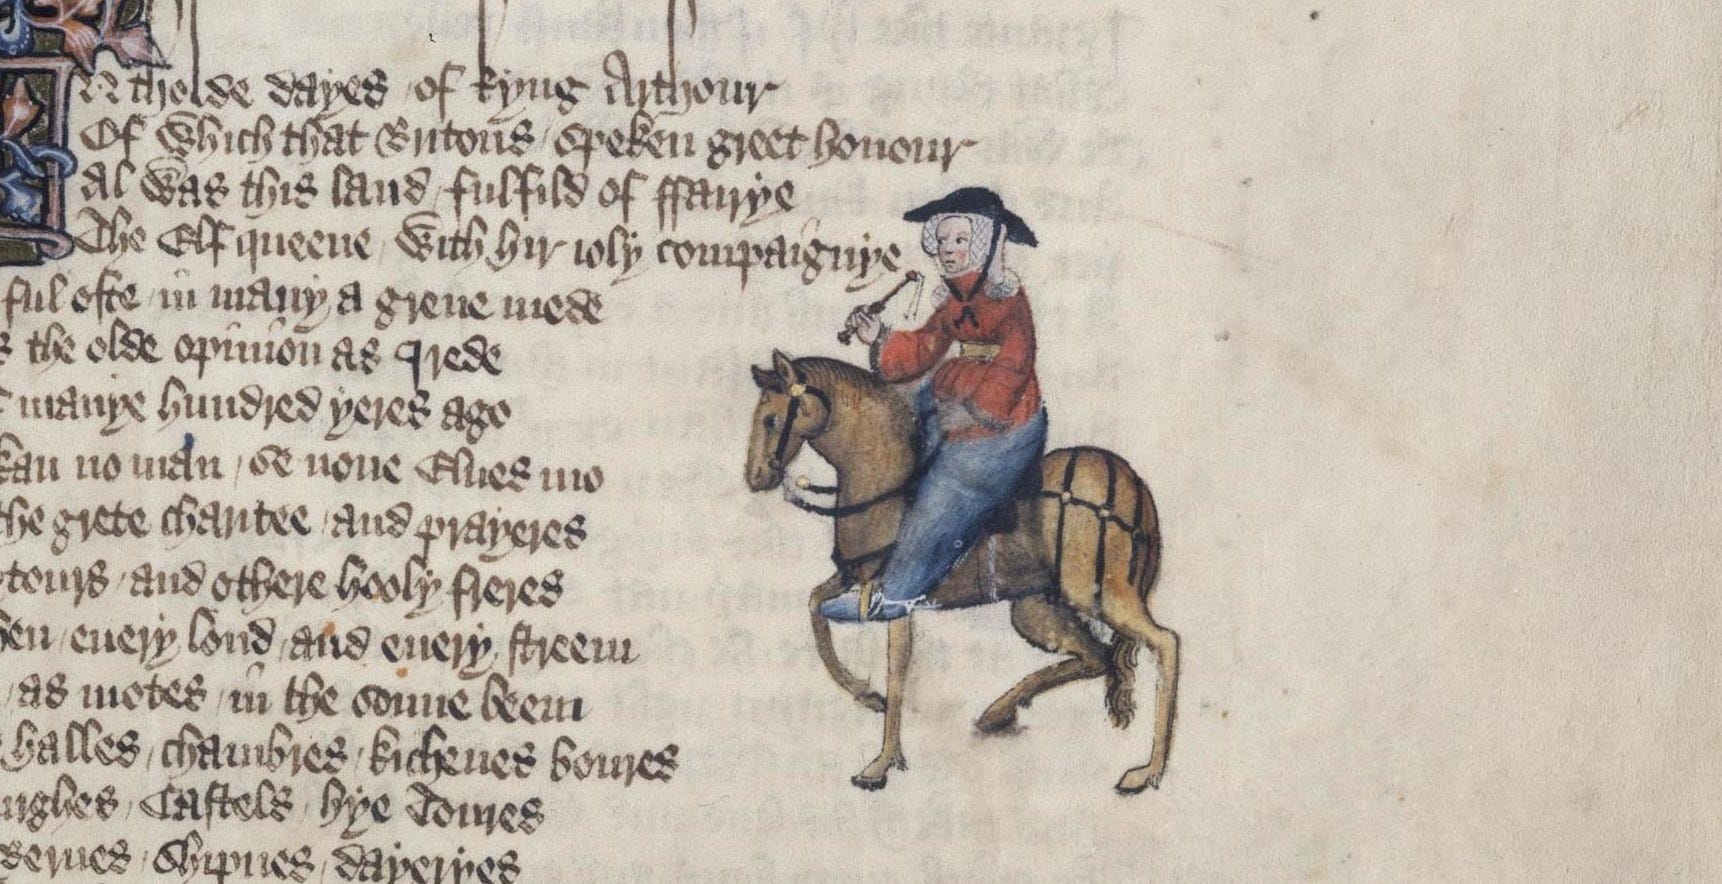 N tholde dayes / of kyng Arthour
Of which that Britons / speken greet honour
Al was this land / fulfild of ffairye
The Elf queene / with hir ioly compaignye
ful ofte / in many a grene mede
the olde opinion as I rede
manye hundred yeres ago
kan no man / se none Elues mo
the grete charitee / and prayeres
tours / and othere hooly freres
hen / euery lond / and euery streem
as motes / in the sonne beem
halles / chambres / kichenes boures
urghes / Castels / hye Toures
Bernes / Shipnes / dayeryes